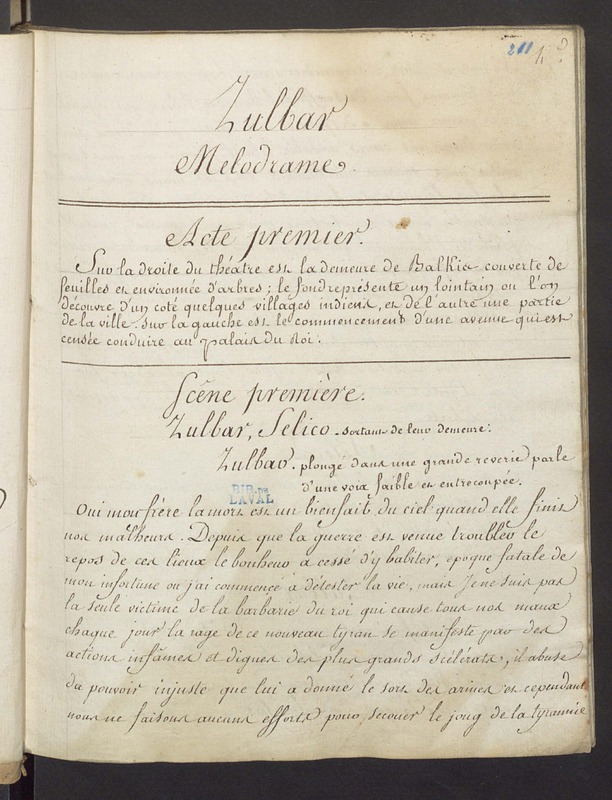 211 4
Zulbar
Melodrame.
Acte premier.
Sur la droite du théatre est la demeure de Balkis couverte de
feuilles et environnée d'arbres ; le fond représente un lointain ou l'on
découvre d'un coté quelques villages indiens, et de l'autre une partie
de la ville. Sur la gauche est le commencement d'une avenue qui est
censée conduire au palais du Roi.
Scêne première.
Zulbar, Selico. sortant de leur demeure.
Zulbar. plongé dans une grande reverie parle
d'une voix faible et entrecoupée.
BIB. DE
LAVAL
Oui mon frère la mort est un bienfait du ciel quand elle finit
nos malheurs. Depuis que la guerre est venue troubler le
repos de ces lieux le bonheur a cessé d'y habiter, epoque fatale de
mon infortune ou j'ai commencé à détester la vie, mais Je ne suis pas
la seule victime de la barbarie du roi qui cause tous nos maux
chaque jour la rage de ce nouveau tyran se manifeste par des
actions infâmes et dignes des plus grands scélérats, il abuse
du pouvoir injuste que lui a donné le sort des armes et cependant
nous ne faisons aucuns efforts pour secouer le joug de la tyrannie